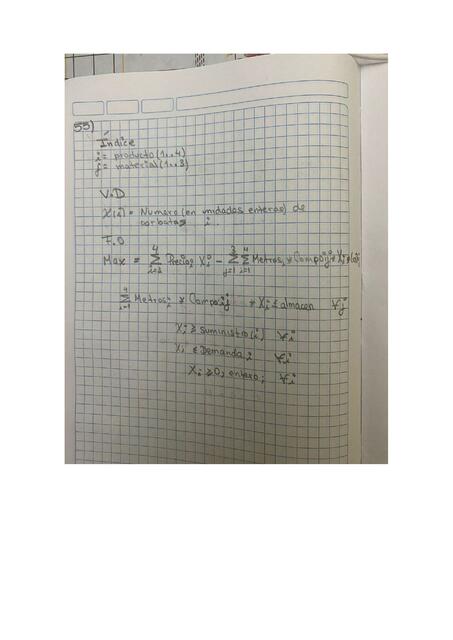 55)
Índice
i = producto (1..4)
j = material (1..3)
V.D
X(i) = Numero (en unidades enteras) de
corbatas i.
F.O
Max = Σ(i=1..4) Precio_i X_i - Σ(j=1..3) Σ(i=1..4) Metros_i * Compo_ij * X_i *
Σ(i=1..4) Metros_i * Compo_ij * X_i ≤ almacen ∀j
X_i ≥ suministro(i) ∀i
X_i ≤ Demanda_i ∀i
X_i ≥ 0, entero; ∀i